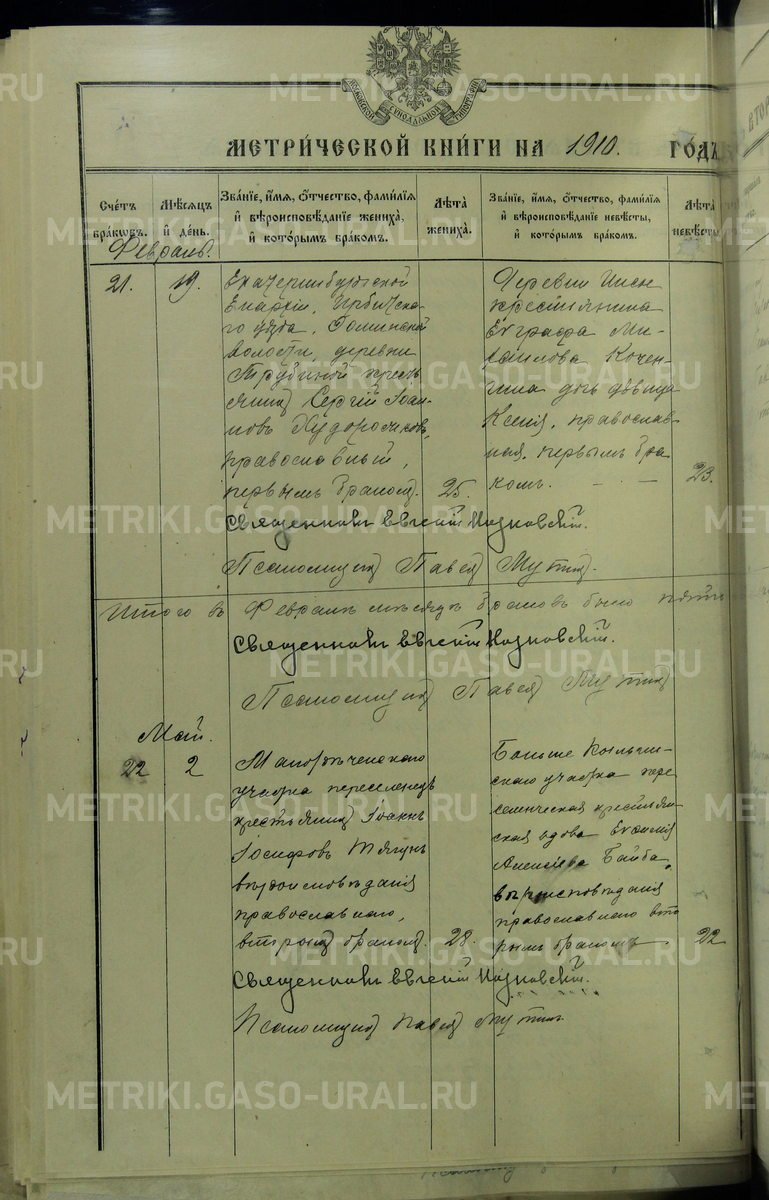 МОСКОВСКОЙ СѴНОДАЛЬНОЙ ТИПОГРАФІИ
МЕТРИ́ЧЕСКОЙ КНИ́ГИ НА 1910. ГО́ДЪ
Сче́тъ бра́ковъ.
Мѣ́сяцъ и҆ де́нь.
Зва́ніе, и҆́мя, ѻ҆́тчество, фами́лія и҆ вѣроисповѣ́даніе жениха̀, и҆ кото́рымъ бра́комъ.
Лѣ́та жениха̀.
Зва́ніе, и҆́мя, ѻ҆́тчество, фами́лія и҆ вѣроисповѣ́даніе невѣ́сты, и҆ кото́рымъ бра́комъ.
Лѣ́та невѣ́сты
Февраль.
21. 19.
Екатеринбургской
Епархіи, Ирбитска-
го уѣзда,
волости, деревни
Трубиной кресть
янинъ Сергій Іоан-
новъ Худорожковъ,
православный,
первымъ бракомъ. 25.
Деревни
крестьянина
Евграфа Ми-
хаилова Кочен-
гина дочь дѣвица
Ксенія, православ-
ная, первымъ бра
комъ. - - 23.
Священникъ Евгеній
Псаломщикъ Павелъ Мутинъ.
Итого въ Февралѣ мѣсяцѣ браковъ было пять
Священникъ Евгеній
Псаломщикъ Павелъ Мутинъ
Май.
22 2
участка переселенецъ
крестьянинъ Іоаннъ
Іосифовъ Тягунъ
вѣроисповѣданія
православнаго,
вторымъ бракомъ. 28.
скаго участка пере
селенческая крестьян-
ская вдова Евфимія
Алексіева Байба,
вѣроисповѣданія
православнаго вто
рымъ бракомъ 22
Священникъ Евгеній
Псаломщикъ Павелъ Мутинъ
METRIKI.GASO-URAL.RU